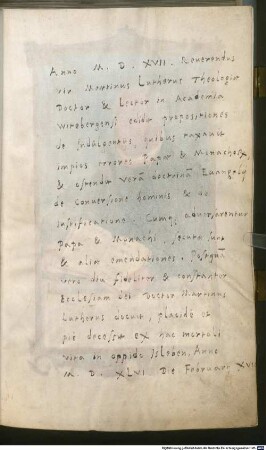 Anno M. D. XVII. Reuerendus
vir Martinus Lutherus Theologiæ
Doctor & Lector in Academia
Witebergensi edidit propositiones
de Indulgentiis, quibus taxauit
impios errores Papæ & Monachorum
& ostendit veram doctrinam Euangelij
de conuersione hominis & de
iustificatione. Cumque aduersarentur
Papa & Monachi, secutæ sunt
& aliæ emendationes. Postquam
vero diu fideliter & constanter
Ecclesiam dei Doctor Martinus
Lutherus docuit, placide et
pie decessit ex hac mortali
vita in oppido Isleben, Anno
M. D. XLVI. Die Februarij XVIII